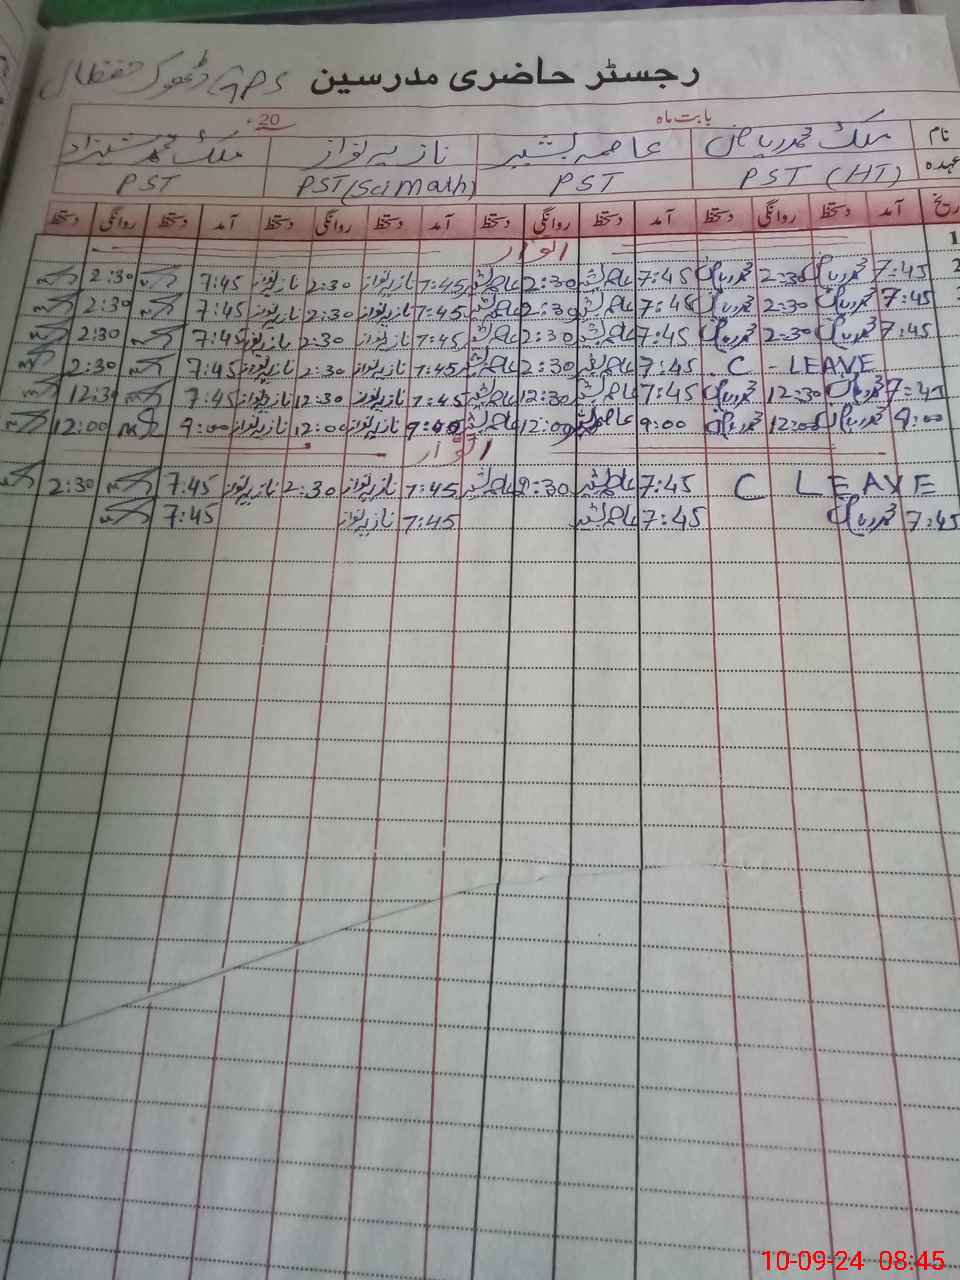 رجسٹر حاضری مدرسین GPS ڈھوک
بابت ماہ 20ء
نام ملک محمد ریاض عاصمہ بشیر نازیہ نواز ملک محمد شہزاد
عہدہ PST (HT) PST PST (Sci Math) PST
تاریخ آمد دستخط روانگی دستخط آمد دستخط روانگی دستخط آمد دستخط روانگی دستخط آمد دستخط روانگی دستخط
1 اتوار
2 7:45 محمد ریاض 2:30 محمد ریاض 7:45 عاصمہ بشیر 2:30 عاصمہ بشیر 7:45 نازیہ نواز 2:30 نازیہ نواز 7:45 2:30
7:45 محمد ریاض 2:30 محمد ریاض 7:45 عاصمہ بشیر 2:30 عاصمہ بشیر 7:45 نازیہ نواز 2:30 نازیہ نواز 7:45 2:30
7:45 محمد ریاض 2:30 محمد ریاض 7:45 عاصمہ بشیر 2:30 عاصمہ بشیر 7:45 نازیہ نواز 2:30 نازیہ نواز 7:45 2:30
C - LEAVE 7:45 عاصمہ بشیر 2:30 عاصمہ بشیر 7:45 نازیہ نواز 2:30 نازیہ نواز 7:45 2:30
7:45 محمد ریاض 12:30 محمد ریاض 7:45 عاصمہ بشیر 12:30 عاصمہ بشیر 7:45 نازیہ نواز 12:30 نازیہ نواز 7:45 12:30
9:00 محمد ریاض 12:00 محمد ریاض 9:00 عاصمہ بشیر 12:00 عاصمہ بشیر 9:00 نازیہ نواز 12:00 نازیہ نواز 9:00 12:00
اتوار
C LEAVE 7:45 عاصمہ بشیر 2:30 عاصمہ بشیر 7:45 نازیہ نواز 2:30 نازیہ نواز 7:45 2:30
7:45 محمد ریاض 7:45 عاصمہ بشیر 7:45 نازیہ نواز 7:45
10-09-24 08:45